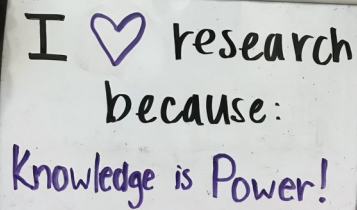 I ♡ research
because:
Knowledge is Power!